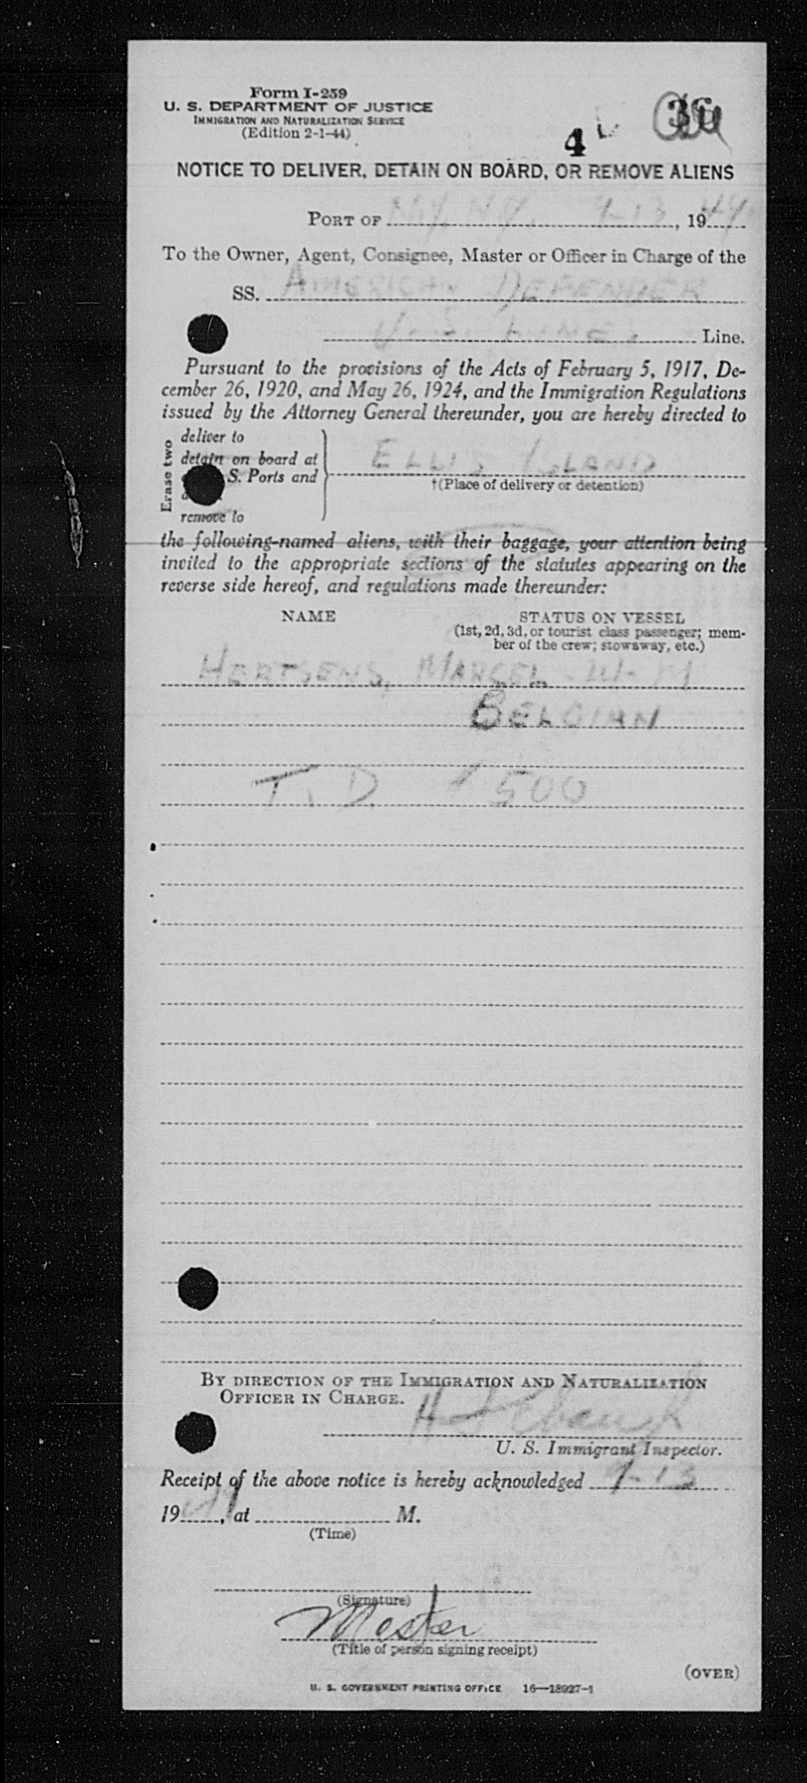 Form I-259
U. S. DEPARTMENT OF JUSTICE
IMMIGRATION AND NATURALIZATION SERVICE
(Edition 2-1-44)
4
36
NOTICE TO DELIVER, DETAIN ON BOARD, OR REMOVE ALIENS
PORT OF N.Y. N.Y. 9-13, 19
To the Owner, Agent, Consignee, Master or Officer in Charge of the
SS. AMERICAN DEFENDER
U. S. LINES Line.
Pursuant to the provisions of the Acts of February 5, 1917, De-
cember 26, 1920, and May 26, 1924, and the Immigration Regulations
issued by the Attorney General thereunder, you are hereby directed to
Erase two
deliver to
detain on board at
S. Ports and
remove to
ELLIS ISLAND
†(Place of delivery or detention)
the following-named aliens, with their baggage, your attention being
invited to the appropriate sections of the statutes appearing on the
reverse side hereof, and regulations made thereunder:
NAME
STATUS ON VESSEL
(1st, 2d, 3d, or tourist class passenger; mem-
ber of the crew; stowaway, etc.)
HERTSENS, MARCEL - 41 - M
BELGIAN
T. D. 500
BY DIRECTION OF THE IMMIGRATION AND NATURALIZATION
OFFICER IN CHARGE.
U. S. Immigrant Inspector.
Receipt of the above notice is hereby acknowledged 9-13
19, at M.
(Time)
(Signature)
Master
(Title of person signing receipt)
(OVER)
U. S. GOVERNMENT PRINTING OFFICE 16—18927-1